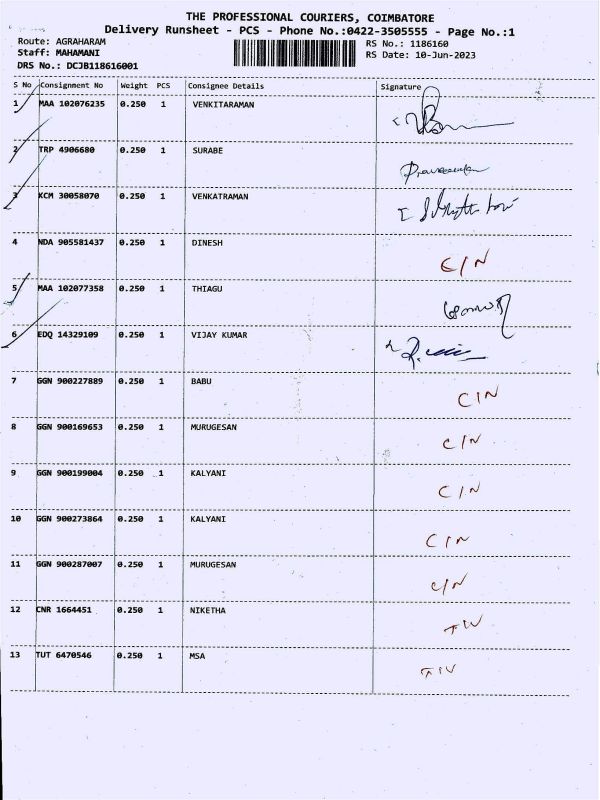 THE PROFESSIONAL COURIERS, COIMBATORE
Delivery Runsheet - PCS - Phone No.:0422-3505555 - Page No.:1
Route: AGRAHARAM
RS No.: 1186160
Staff: MAHAMANI
RS Date: 10-Jun-2023
DRS No.: DCJB118616001
S No Consignment No Weight PCS Consignee Details Signature
1 MAA 102076235 0.250 1 VENKITARAMAN
2 TRP 4906680 0.250 1 SURABE
3 KCM 30058070 0.250 1 VENKATRAMAN
4 NDA 905581437 0.250 1 DINESH C/N
5 MAA 102077358 0.250 1 THIAGU
6 EDQ 14329109 0.250 1 VIJAY KUMAR
7 GGN 900227889 0.250 1 BABU C/N
8 GGN 900169653 0.250 1 MURUGESAN C/N
9 GGN 900199004 0.250 1 KALYANI C/N
10 GGN 900273864 0.250 1 KALYANI C/N
11 GGN 900287007 0.250 1 MURUGESAN C/N
12 CNR 1664451 0.250 1 NIKETHA
13 TUT 6470546 0.250 1 MSA